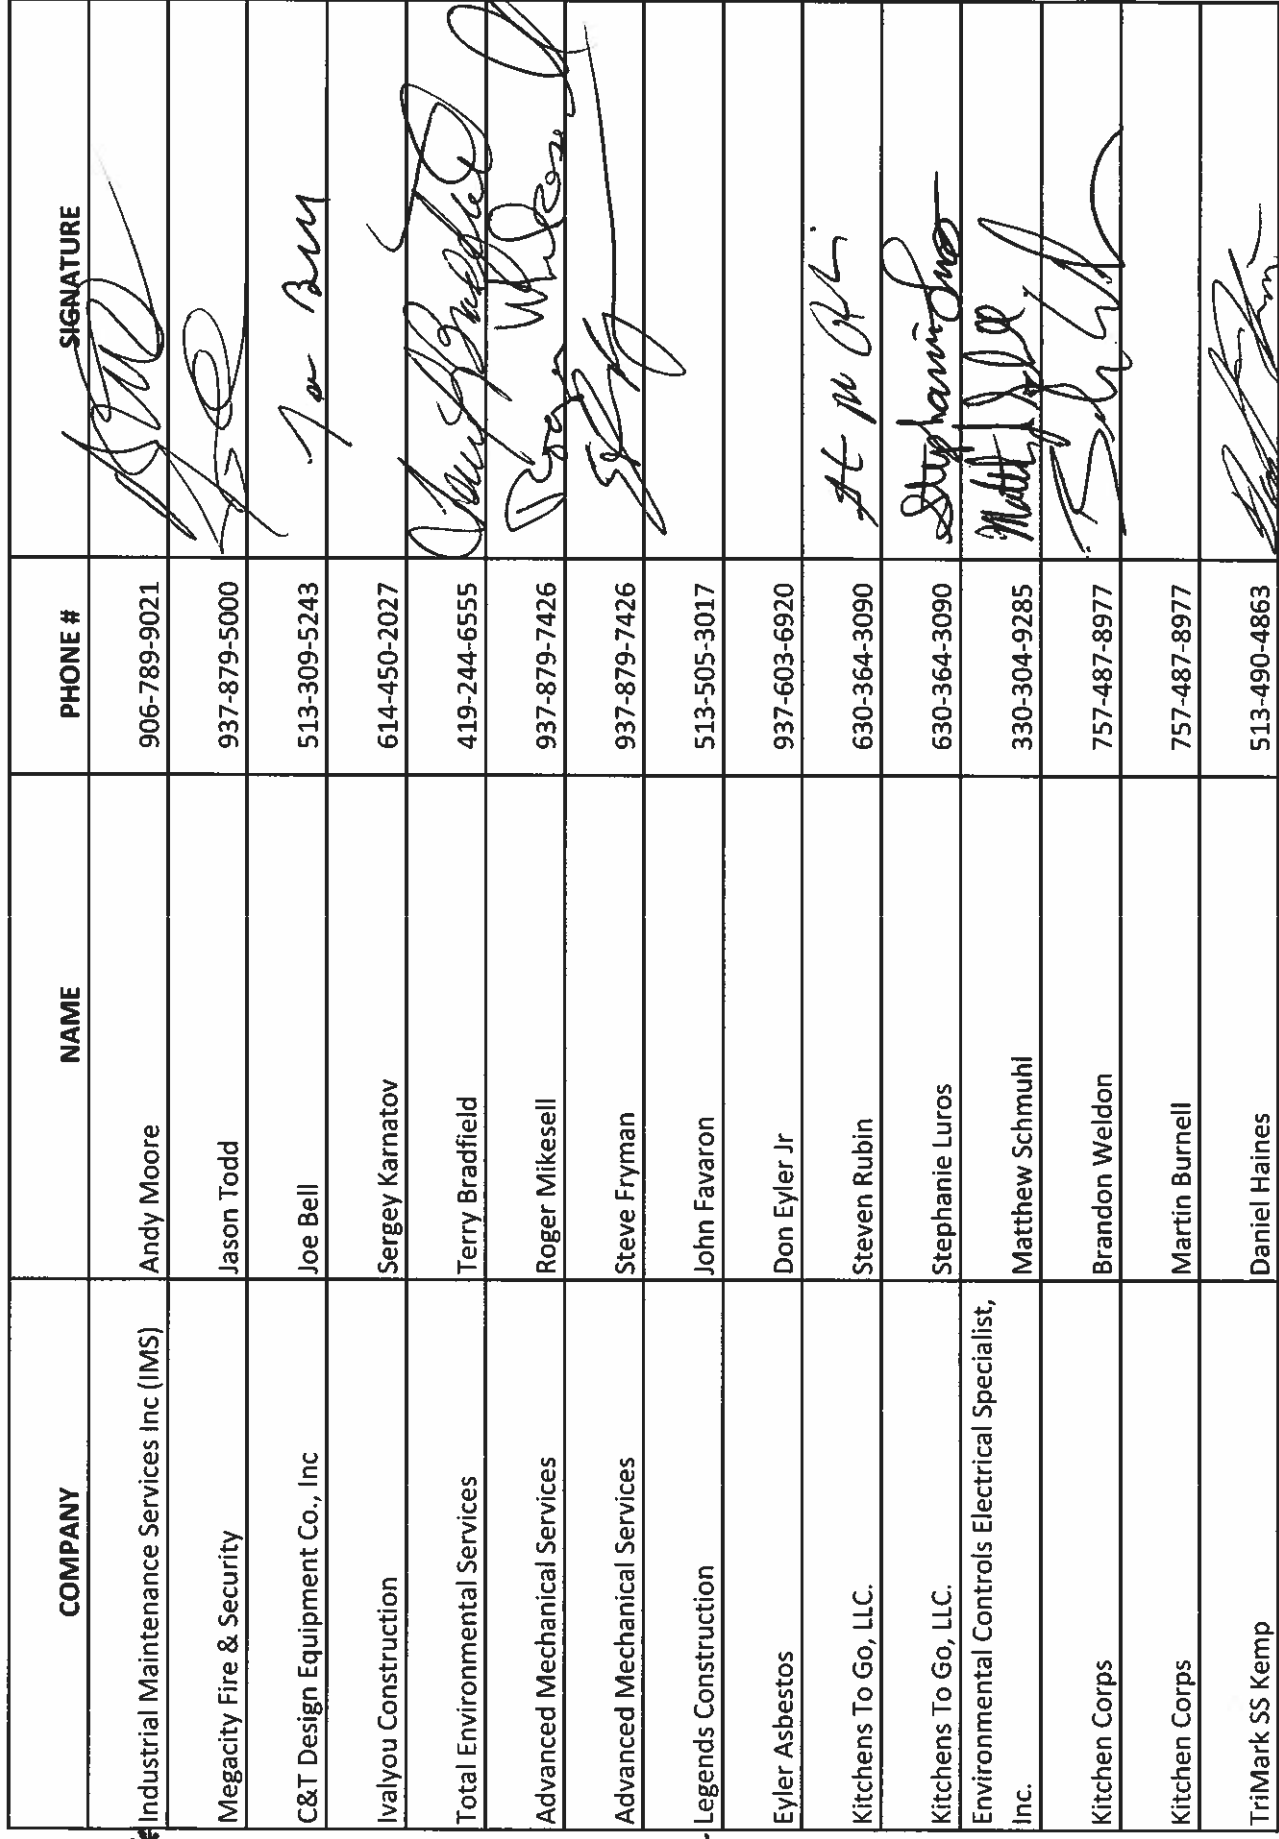 COMPANY NAME PHONE # SIGNATURE
Industrial Maintenance Services Inc (IMS) Andy Moore 906-789-9021
Megacity Fire & Security Jason Todd 937-879-5000
C&T Design Equipment Co., Inc Joe Bell 513-309-5243 Joe Bell
Ivalyou Construction Sergey Karnatov 614-450-2027
Total Environmental Services Terry Bradfield 419-244-6555
Advanced Mechanical Services Roger Mikesell 937-879-7426 Roger
Advanced Mechanical Services Steve Fryman 937-879-7426
Legends Construction John Favaron 513-505-3017
Eyler Asbestos Don Eyler Jr 937-603-6920
Kitchens To Go, LLC. Steven Rubin 630-364-3090
Kitchens To Go, LLC. Stephanie Luros 630-364-3090 Stephanie Luros
Environmental Controls Electrical Specialist,
Inc. Matthew Schmuhl 330-304-9285
Kitchen Corps Brandon Weldon 757-487-8977
Kitchen Corps Martin Burnell 757-487-8977
TriMark SS Kemp Daniel Haines 513-490-4863